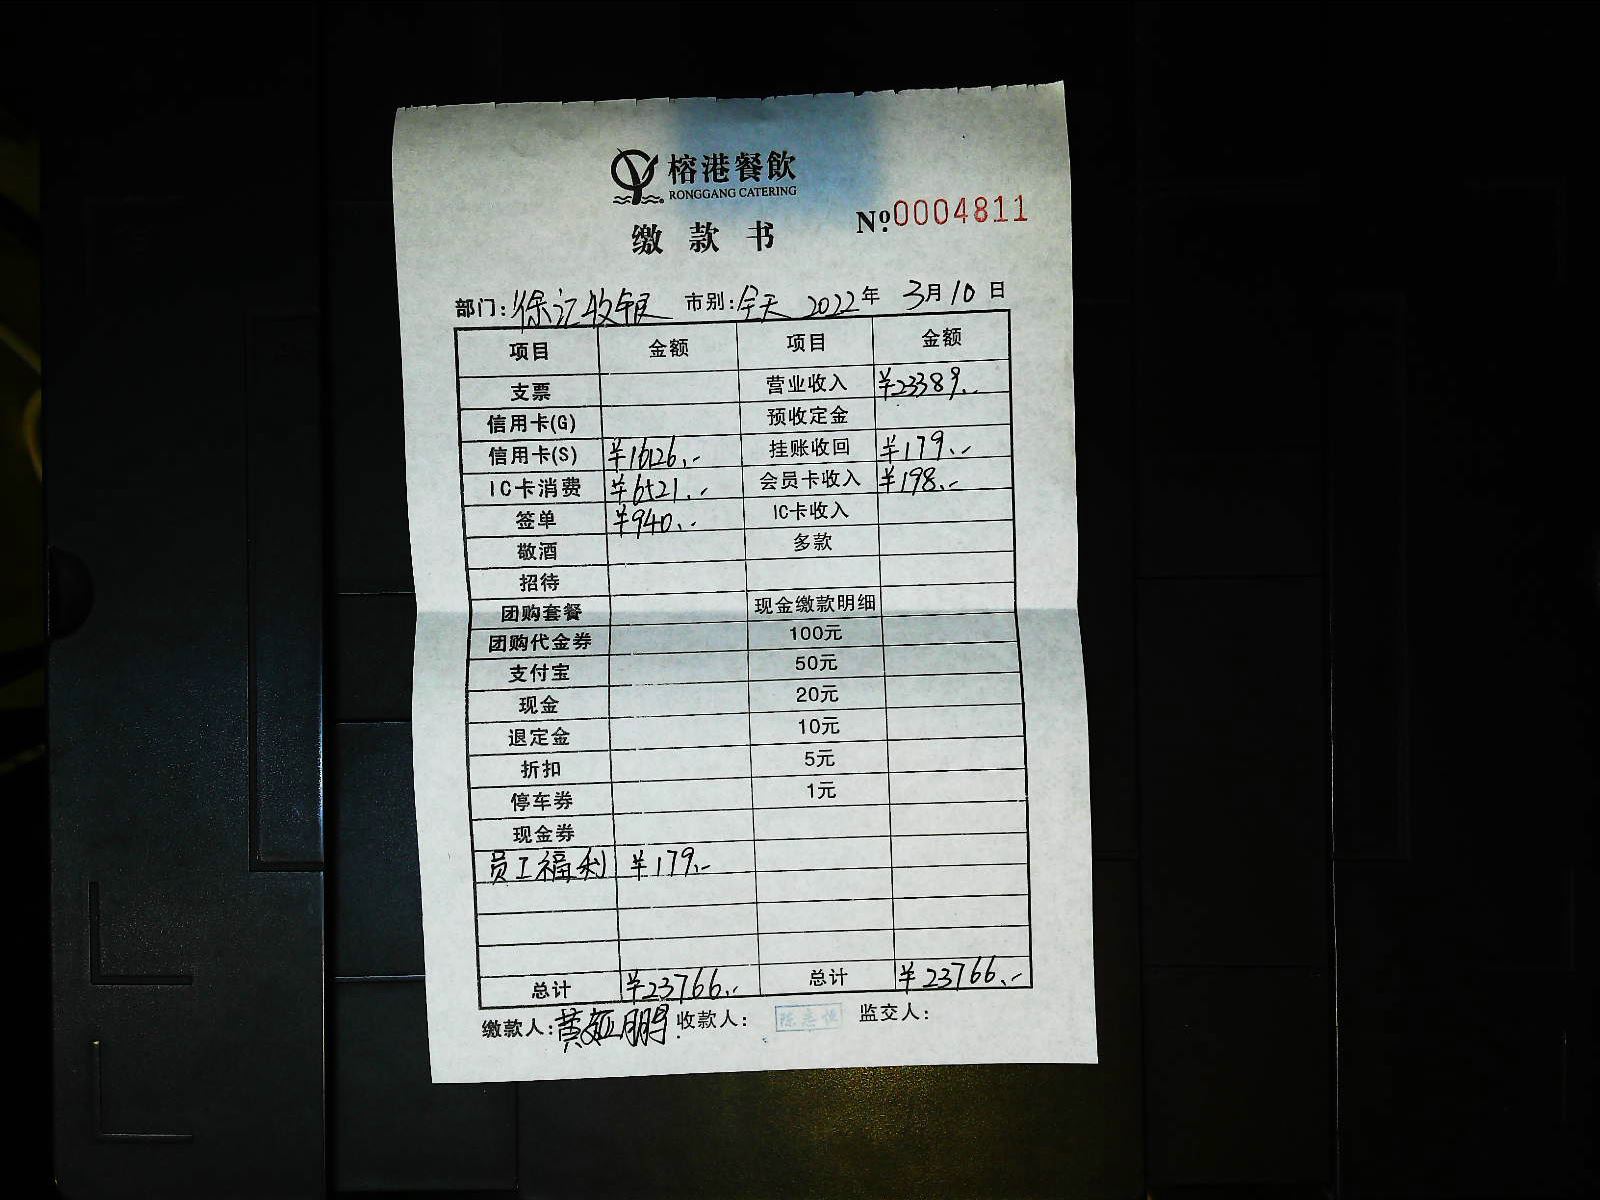 榕港餐飲
RONGGANG CATERING
缴款书
№0004811
部门:徐记收银 市别:全天 2022年 3月10日
项目 金额 项目 金额
支票 营业收入 ¥23389.-
信用卡(G) 预收定金
信用卡(S) ¥16126.- 挂账收回 ¥179.-
IC卡消费 ¥6521.- 会员卡收入 ¥198.-
签单 ¥940.- IC卡收入
敬酒 多款
招待
团购套餐 现金缴款明细
团购代金券 100元
支付宝 50元
现金 20元
退定金 10元
折扣 5元
停车券 1元
现金券
员工福利 ¥179.-
总计 ¥23766.- 总计 ¥23766.-
缴款人:黄 鹏 收款人: 陈志恒 监交人: